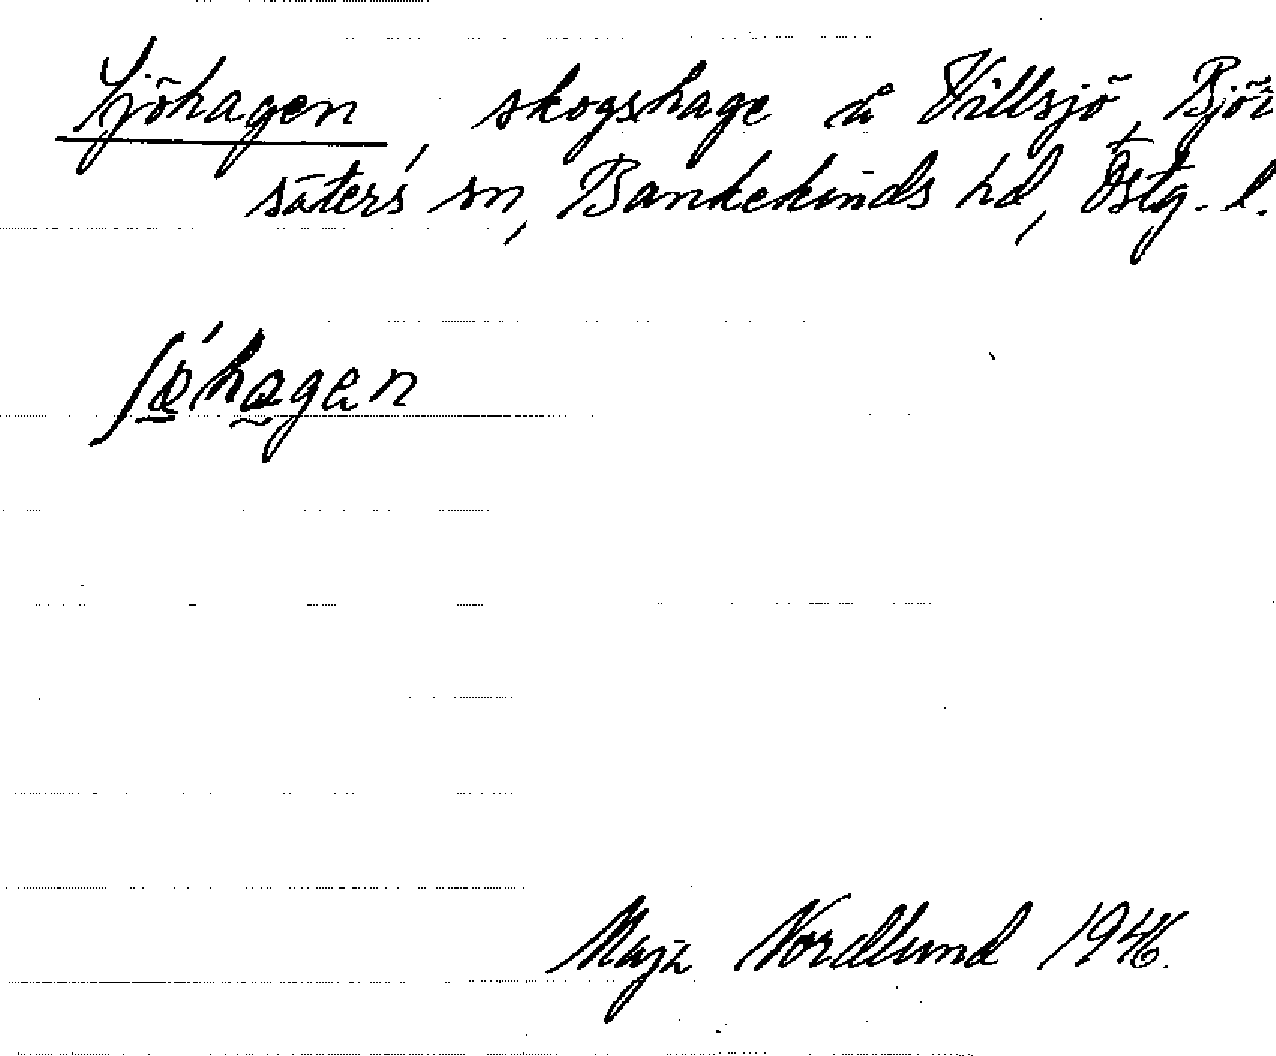 Sjöhagen, skogshage å Villsjö, Björ
säters sn, Bankekinds hd, Östg. l.
ʃǿ̱ha̰gan
Maja Nordlund 1946.